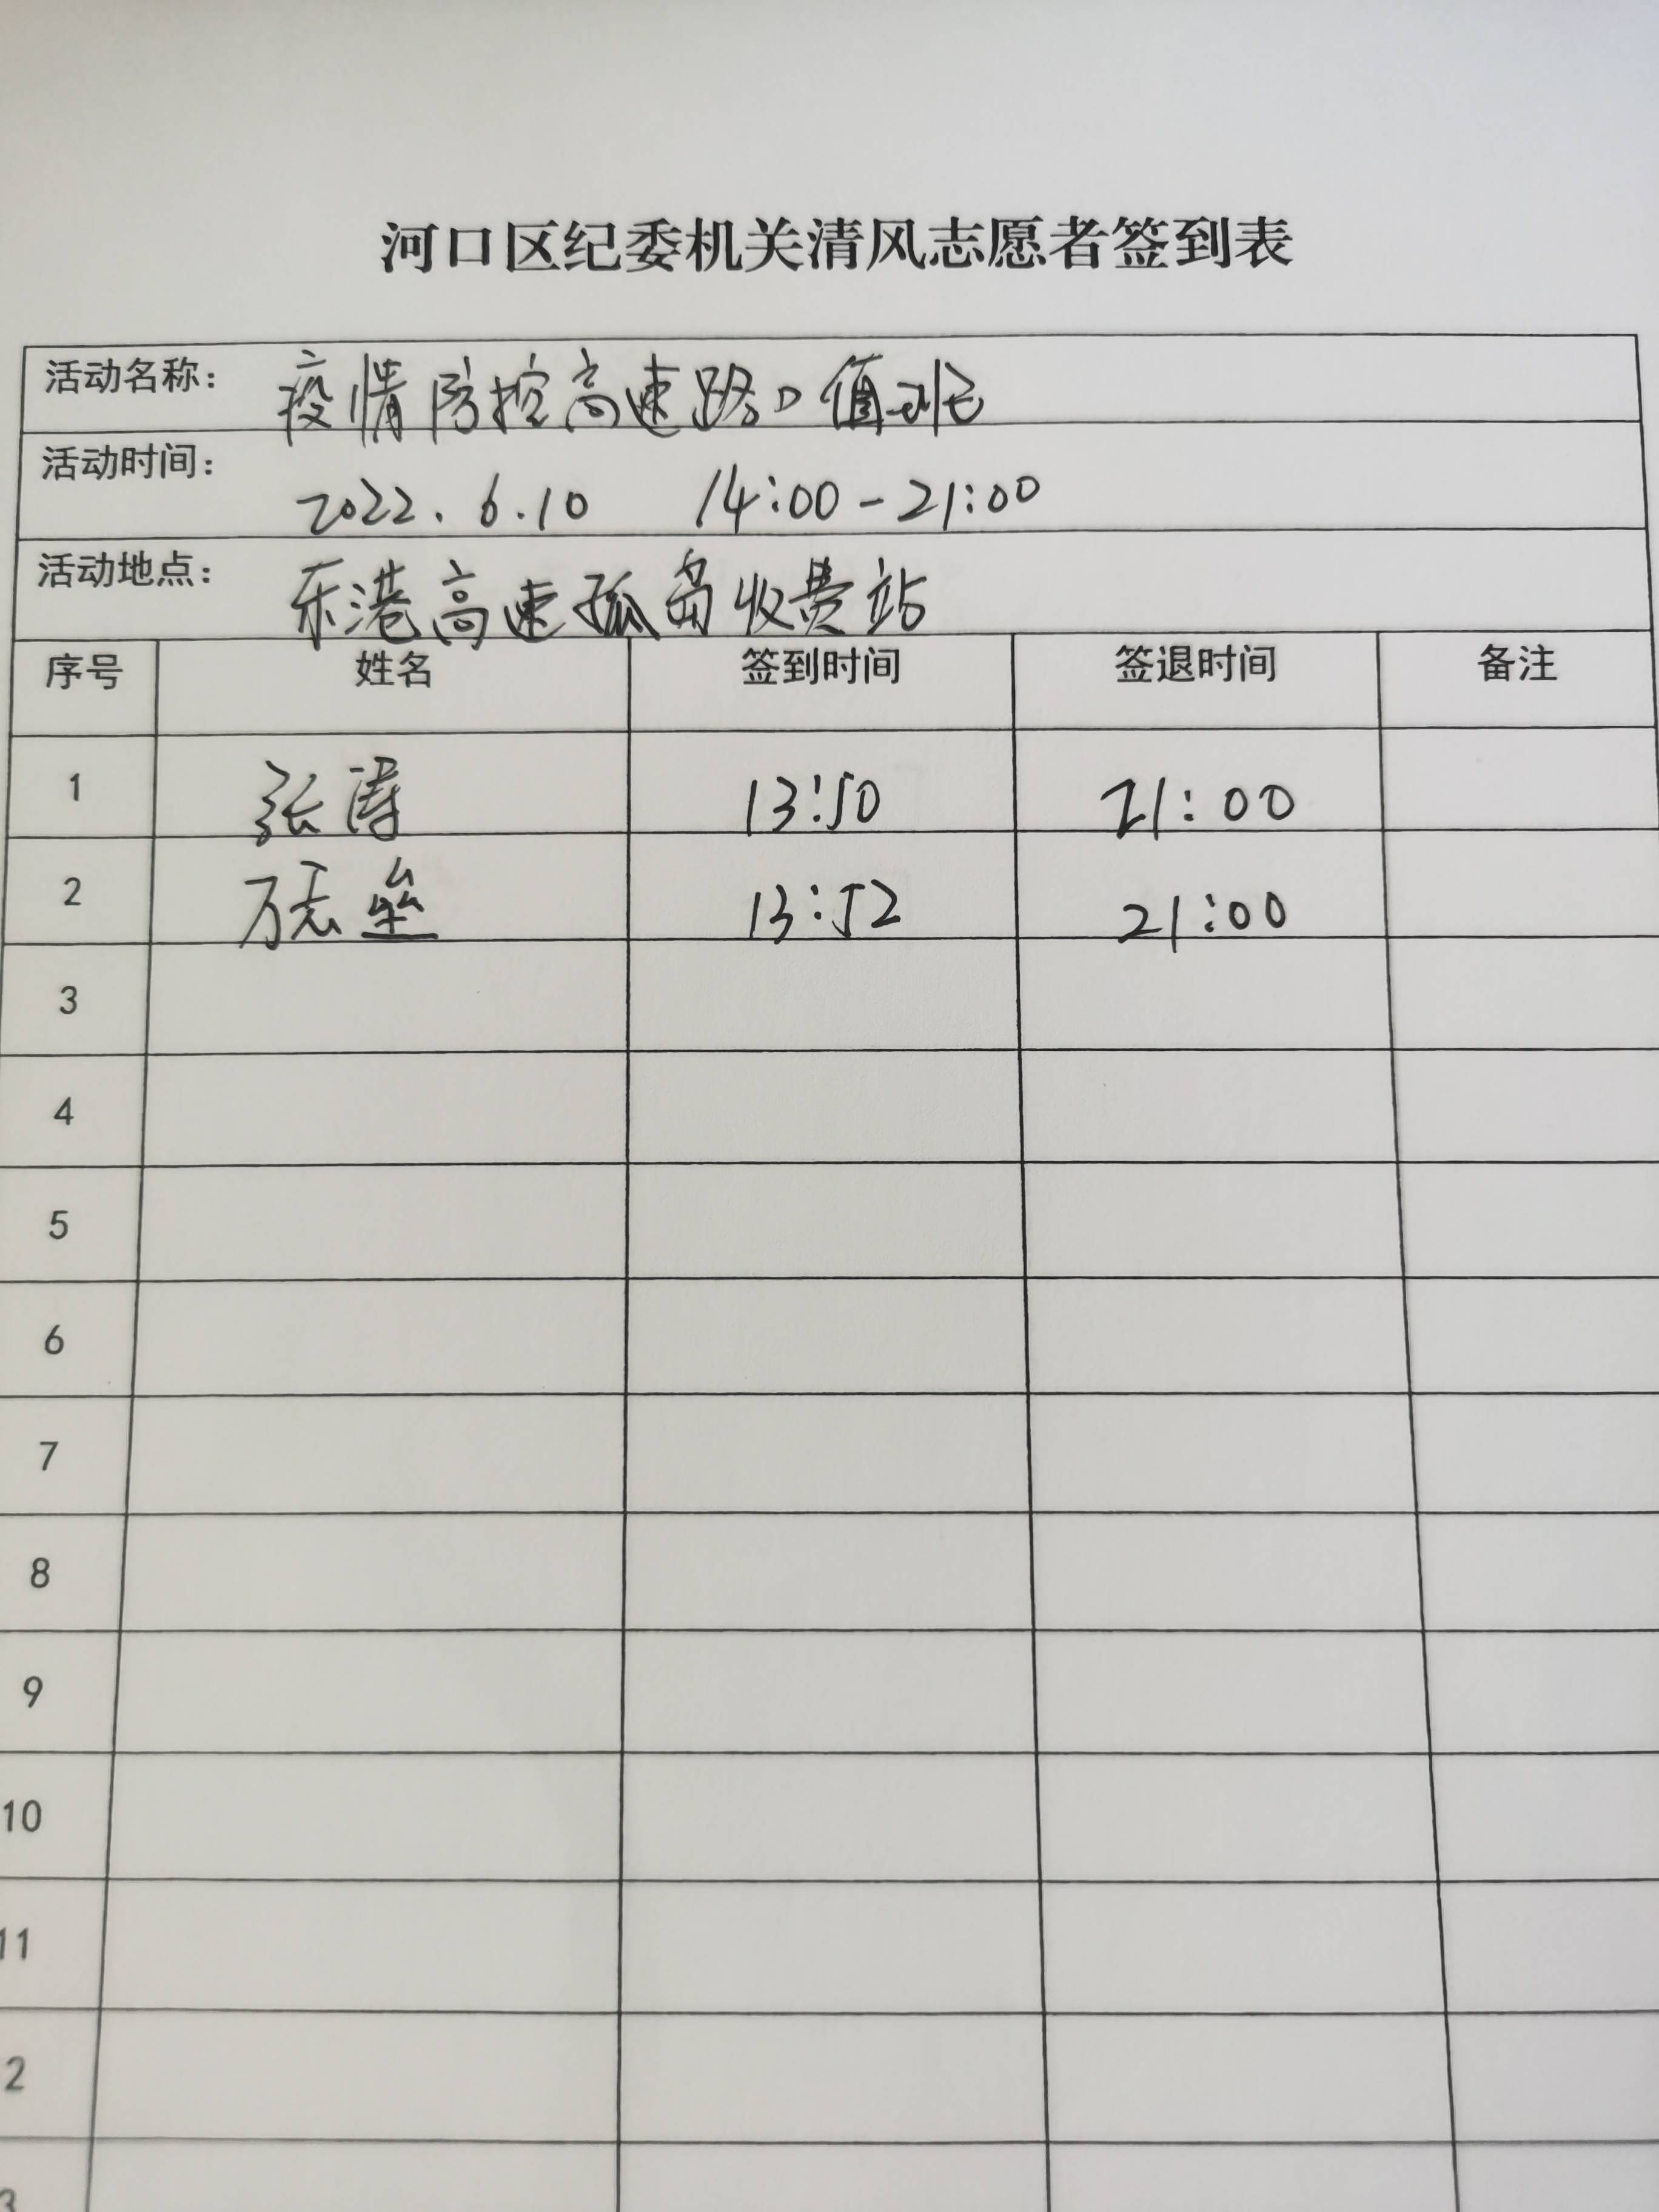 河口区纪委机关清风志愿者签到表
活动名称： 疫情防控高速路口值班
活动时间： 2022.6.10 14:00-21:00
活动地点： 东港高速孤岛收费站
序号 姓名 签到时间 签退时间 备注
1 张涛 13:50 21:00
2 万志垒 13:52 21:00
3
4
5
6
7
8
9
10
11
2
3